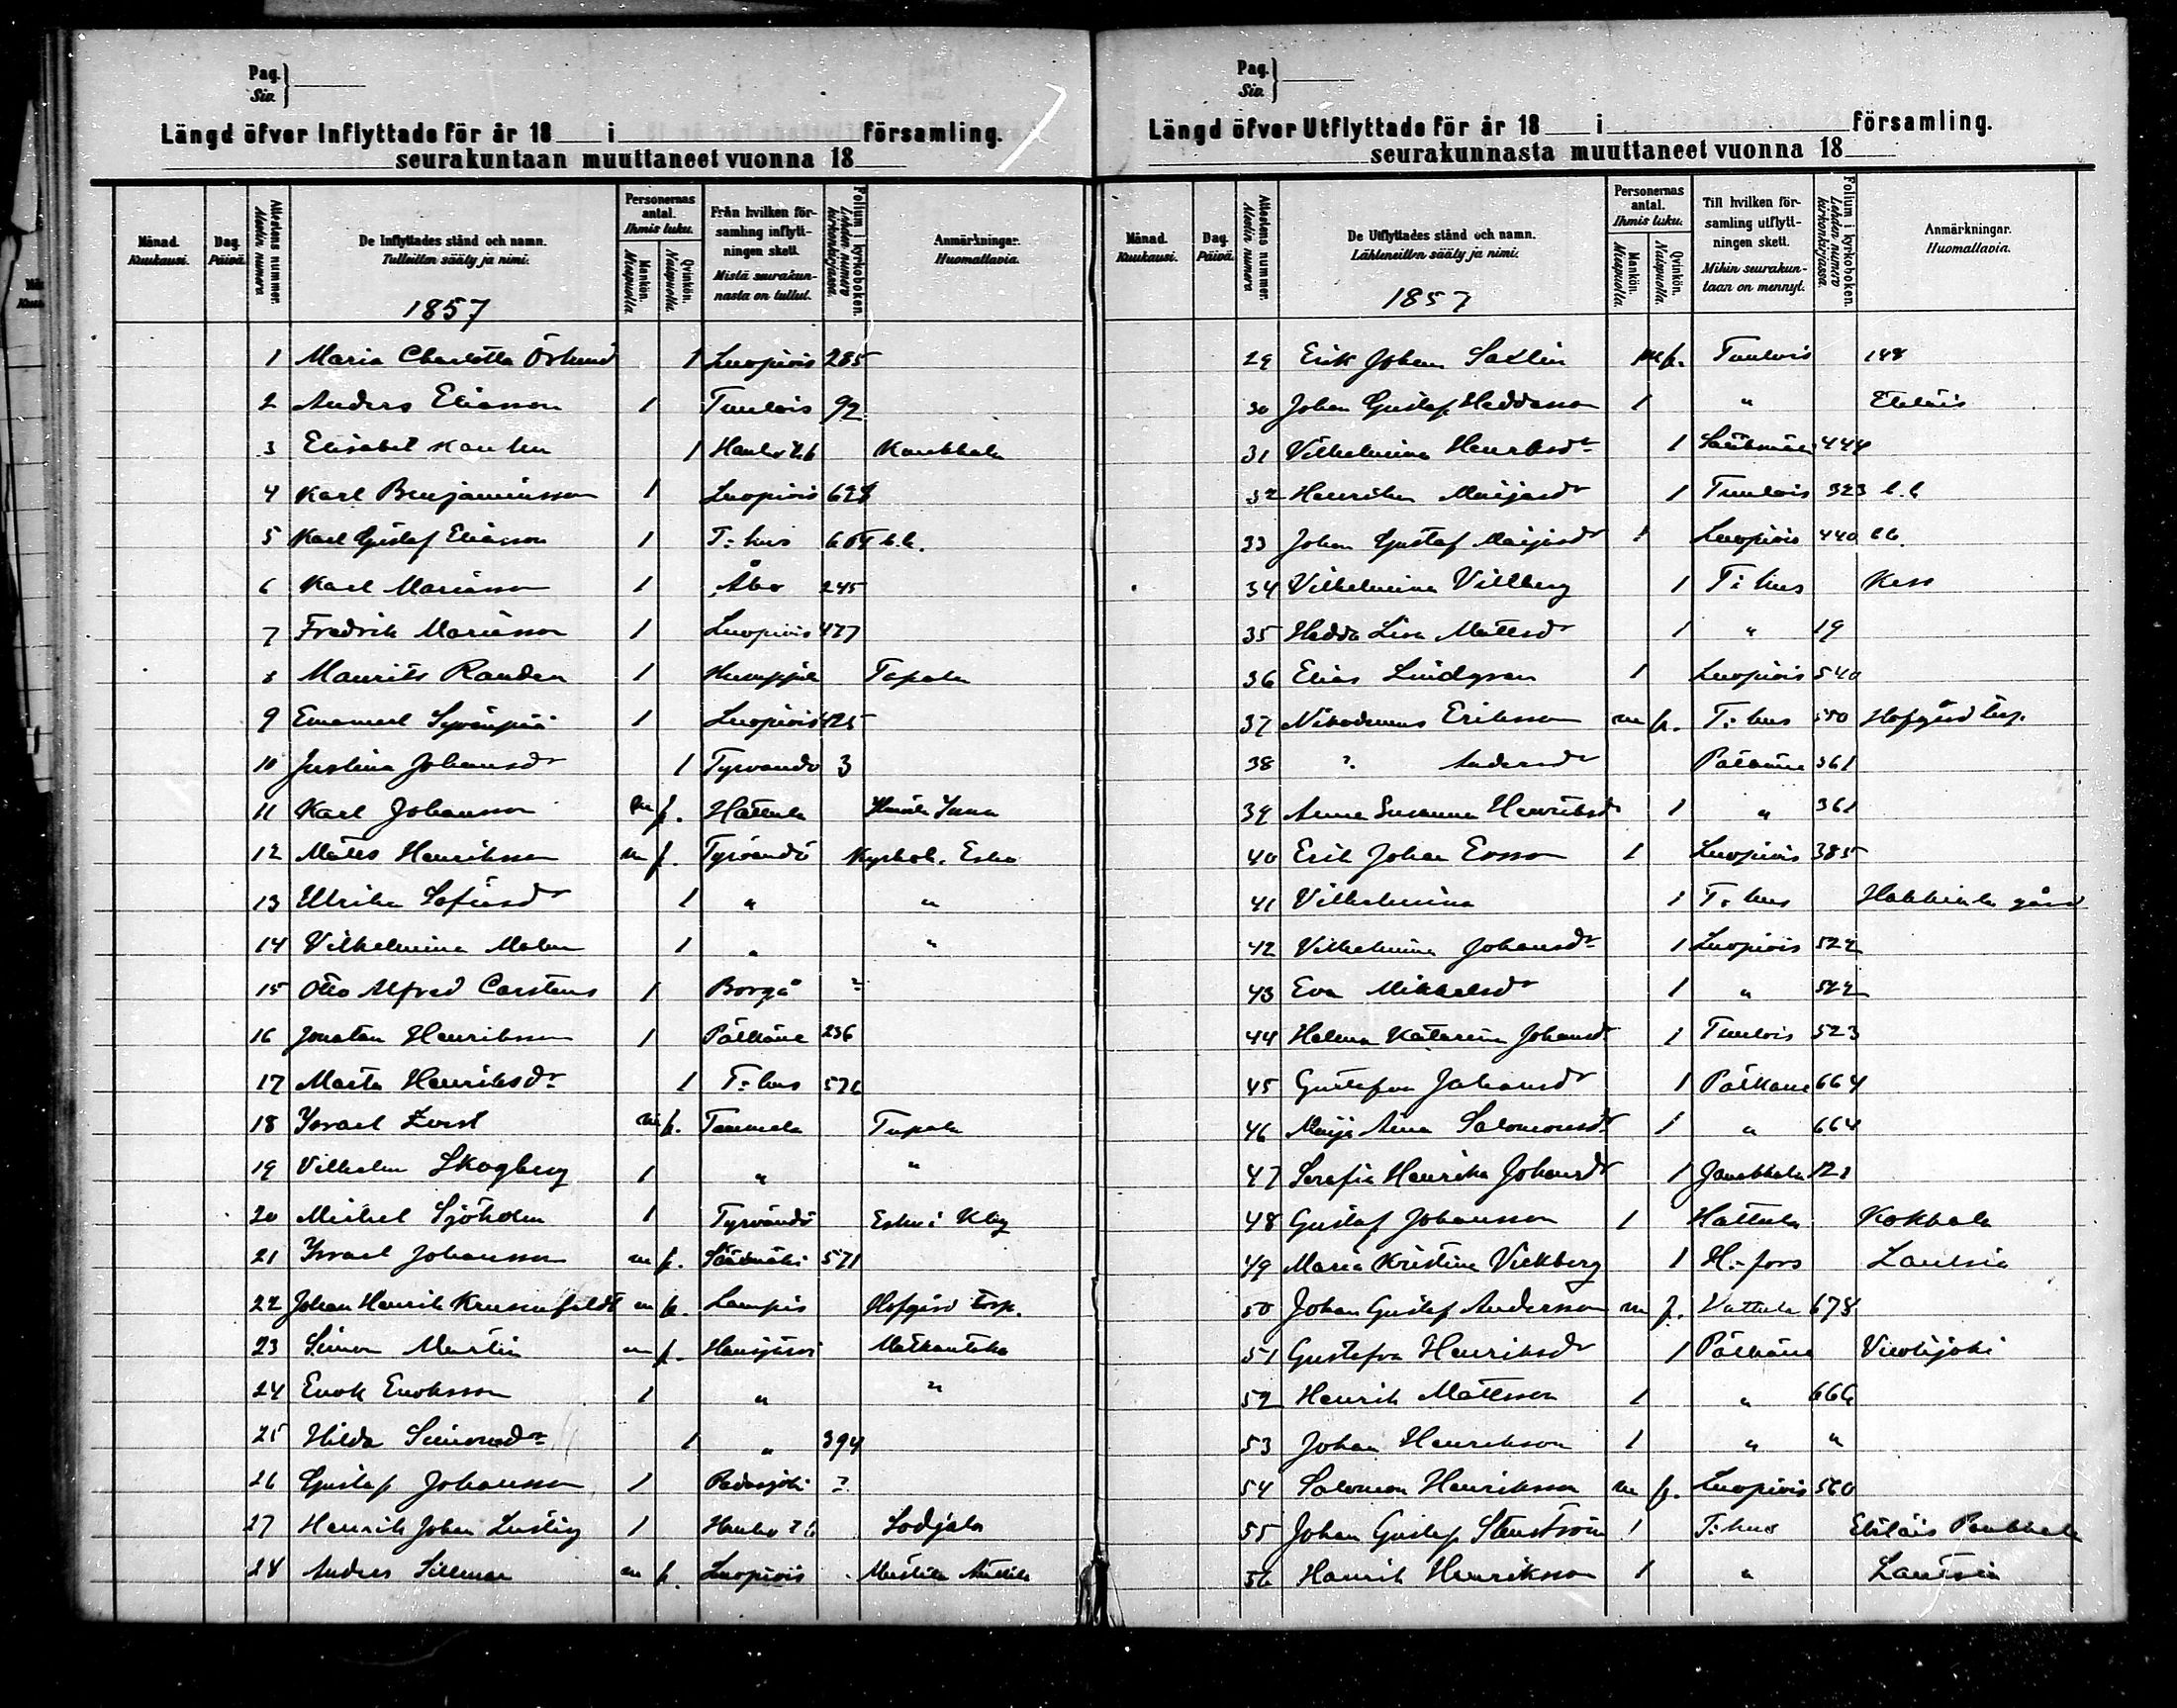 Pag.
Siv.
Längd öfver Inflyttade för år 18 i församling.
seurakuntaan muuttaneet vuonna 18
Månad. Kuukausi.
Dag. Päivä.
Attestens nummer. Muutin numero
De Inflyttades stånd och namn.
Tulleitten sääty ja nimi.
1857
Personernas antal. Ihmis luku.
Mankön. Miespuolia.
Qvinkön. Naispuolia.
Från hvilken församling inflyttningen skett.
Mistä seurakunnasta on tullut.
Folium i kyrkoboken. Lehden numero kirkonkirjassa.
Anmärkningar. Huomattavia.
1 Maria Charlotta Örlund 1 Luopiois 285
2 Anders Eliasson 1 Tuulois 92
3 Elisabet 1 Hauho
4 Karl Benjaminsson 1 Luopiois
5 Karl Gustaf Eliasson 1 T:hus
6 Karl Mariasson 1 Åbo 245
7 Fredrik Mariasson 1 Luopiois 477
8 Maurits Randen 1 Humppila Topola
9 Emanuel Syvänpää 1 Luopiois 425
10 Justina Johansdr 1 Tyrvändö 3
11 Karl Johansson m f. Hattula
12 Matts Henriksson m f. Tyrvändö Kyrkok. Esko
13 Ulrika Sefiasdr 1 " "
14 Vilhelmina Malm 1 " "
15 Otto Alfred Carstens 1 Borgå ?
16 Jonatan Henriksson 1 Pälkäne 236
17 Marta Henriksdr 1 T:hus 576
18 Israel m f. Tammela
19 Vilhelm Skogberg 1 " "
20 Mickel Sjöholm 1 Tyrvändö
21 Israel Johansson m f. Sääksmäki 571
22 Johan Henrik Krusenfeldt m f. Lampis Hofgård torp.
23 Simon Martin m f. Hausjärvi
24 Enok Enoksson 1 " "
25 Hilda Simonsdr 1 " 394
26 Gustaf Johansson 1 Padasjoki ?
27 Henrik Johan Lustig 1 Hauho Sodjala
28 Anders Sillman m f. Luopiois
Pag.
Siv.
Längd öfver Utflyttade för år 18 i församling.
seurakunnasta muuttaneet vuonna 18
Månad. Kuukausi.
Dag. Päivä.
Attestens nummer. Muutin numero
De Utflyttades stånd och namn.
Lähteneitten sääty ja nimi.
1857
Personernas antal. Ihmis luku.
Mankön. Miespuolia.
Qvinkön. Naispuolia.
Till hvilken församling utflyttningen skett.
Mihin seurakuntaan on mennyt.
Folium i kyrkoboken. Lehden numero kirkonkirjassa.
Anmärkningar. Huomattavia.
29 Erik Johan Saxlin m f. Tuulois 148
30 Johan Gustaf Heddasson 1 " Eteläis
31 Vilhelmina Henriksdr 1 Sääksmäki 444
32 Henrika Maijasdr 1 Tuulois 323 b.b
33 Johan Gustaf 1 Luopiois 440 bb.
34 Vilhelmina Villberg 1 T:hus Kess
35 Hedda Lisa Mattsdr 1 " 19
36 Elias Lindgren 1 Luopiois 540
37 Nikodemus Eriksson m f. T:hus 550 Hofgård torp.
38 ? Andersdr Pälkäne 361
39 Anna Susanna Henriksdr 1 " 361
40 Erik Johan Evsson 1 Luopiois 385
41 Vilhelmina 1 T:hus Hakkiala gård
42 Vilhelmina Johansdr 1 Luopiois 522
43 Eva Mikkelsdr 1 " 522
44 Helena Katarina Johansdr 1 Tuulois 523
45 Gustafva Johansdr 1 Pälkäne 664
46 Maija Anna Salomonsdr 1 " 664
47 Serafia Henrika Johansdr 1 Janakkala 121
48 Gustaf Johansson 1 Hattula Kokkala
49 Maria Kristina Vickberg 1 H:fors Lautsia
50 Johan Gustaf Andersson m f. Hattula 678
51 Gustafva Henriksdr 1 Pälkäne Vuolijoki
52 Henrik Mattsson 1 " 666
53 Johan Henriksson 1 " "
54 Salomon Henriksson m f. Luopiois 560
55 Johan Gustaf Stenström 1 T:hus Eteläis
56 Henrik Henriksson 1 " Lautsia